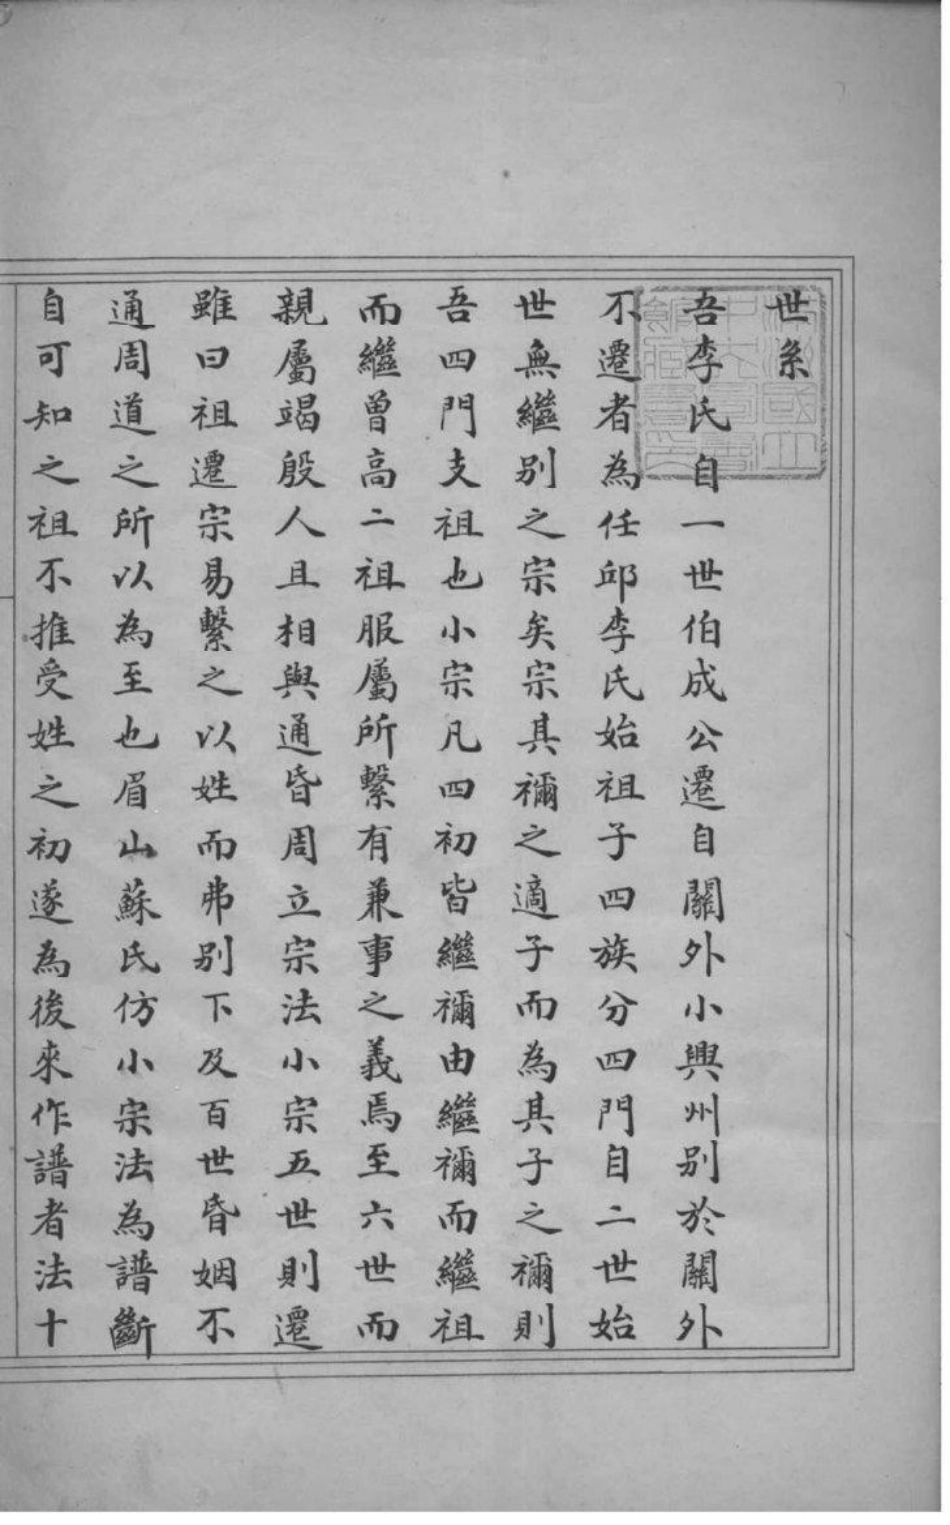 世系
吾李氏自一世伯成公遷自關外小興州别於關外
不遷者為任邱李氏始祖子四族分四門自二世始
世無繼别之宗矣宗其禰之適子而為其子之禰則
吾四門支祖也小宗凡四初皆繼禰由繼禰而繼祖
而繼曾高二祖服屬所繫有兼事之義焉至六世而
親屬竭殷人且相與通昏周立宗法小宗五世則遷
雖曰祖遷宗易繫之以姓而弗别下及百世昏姻不
通周道之所以為至也眉山蘇氏仿小宗法為譜斷
自可知之祖不推受姓之初遂為後來作譜者法十